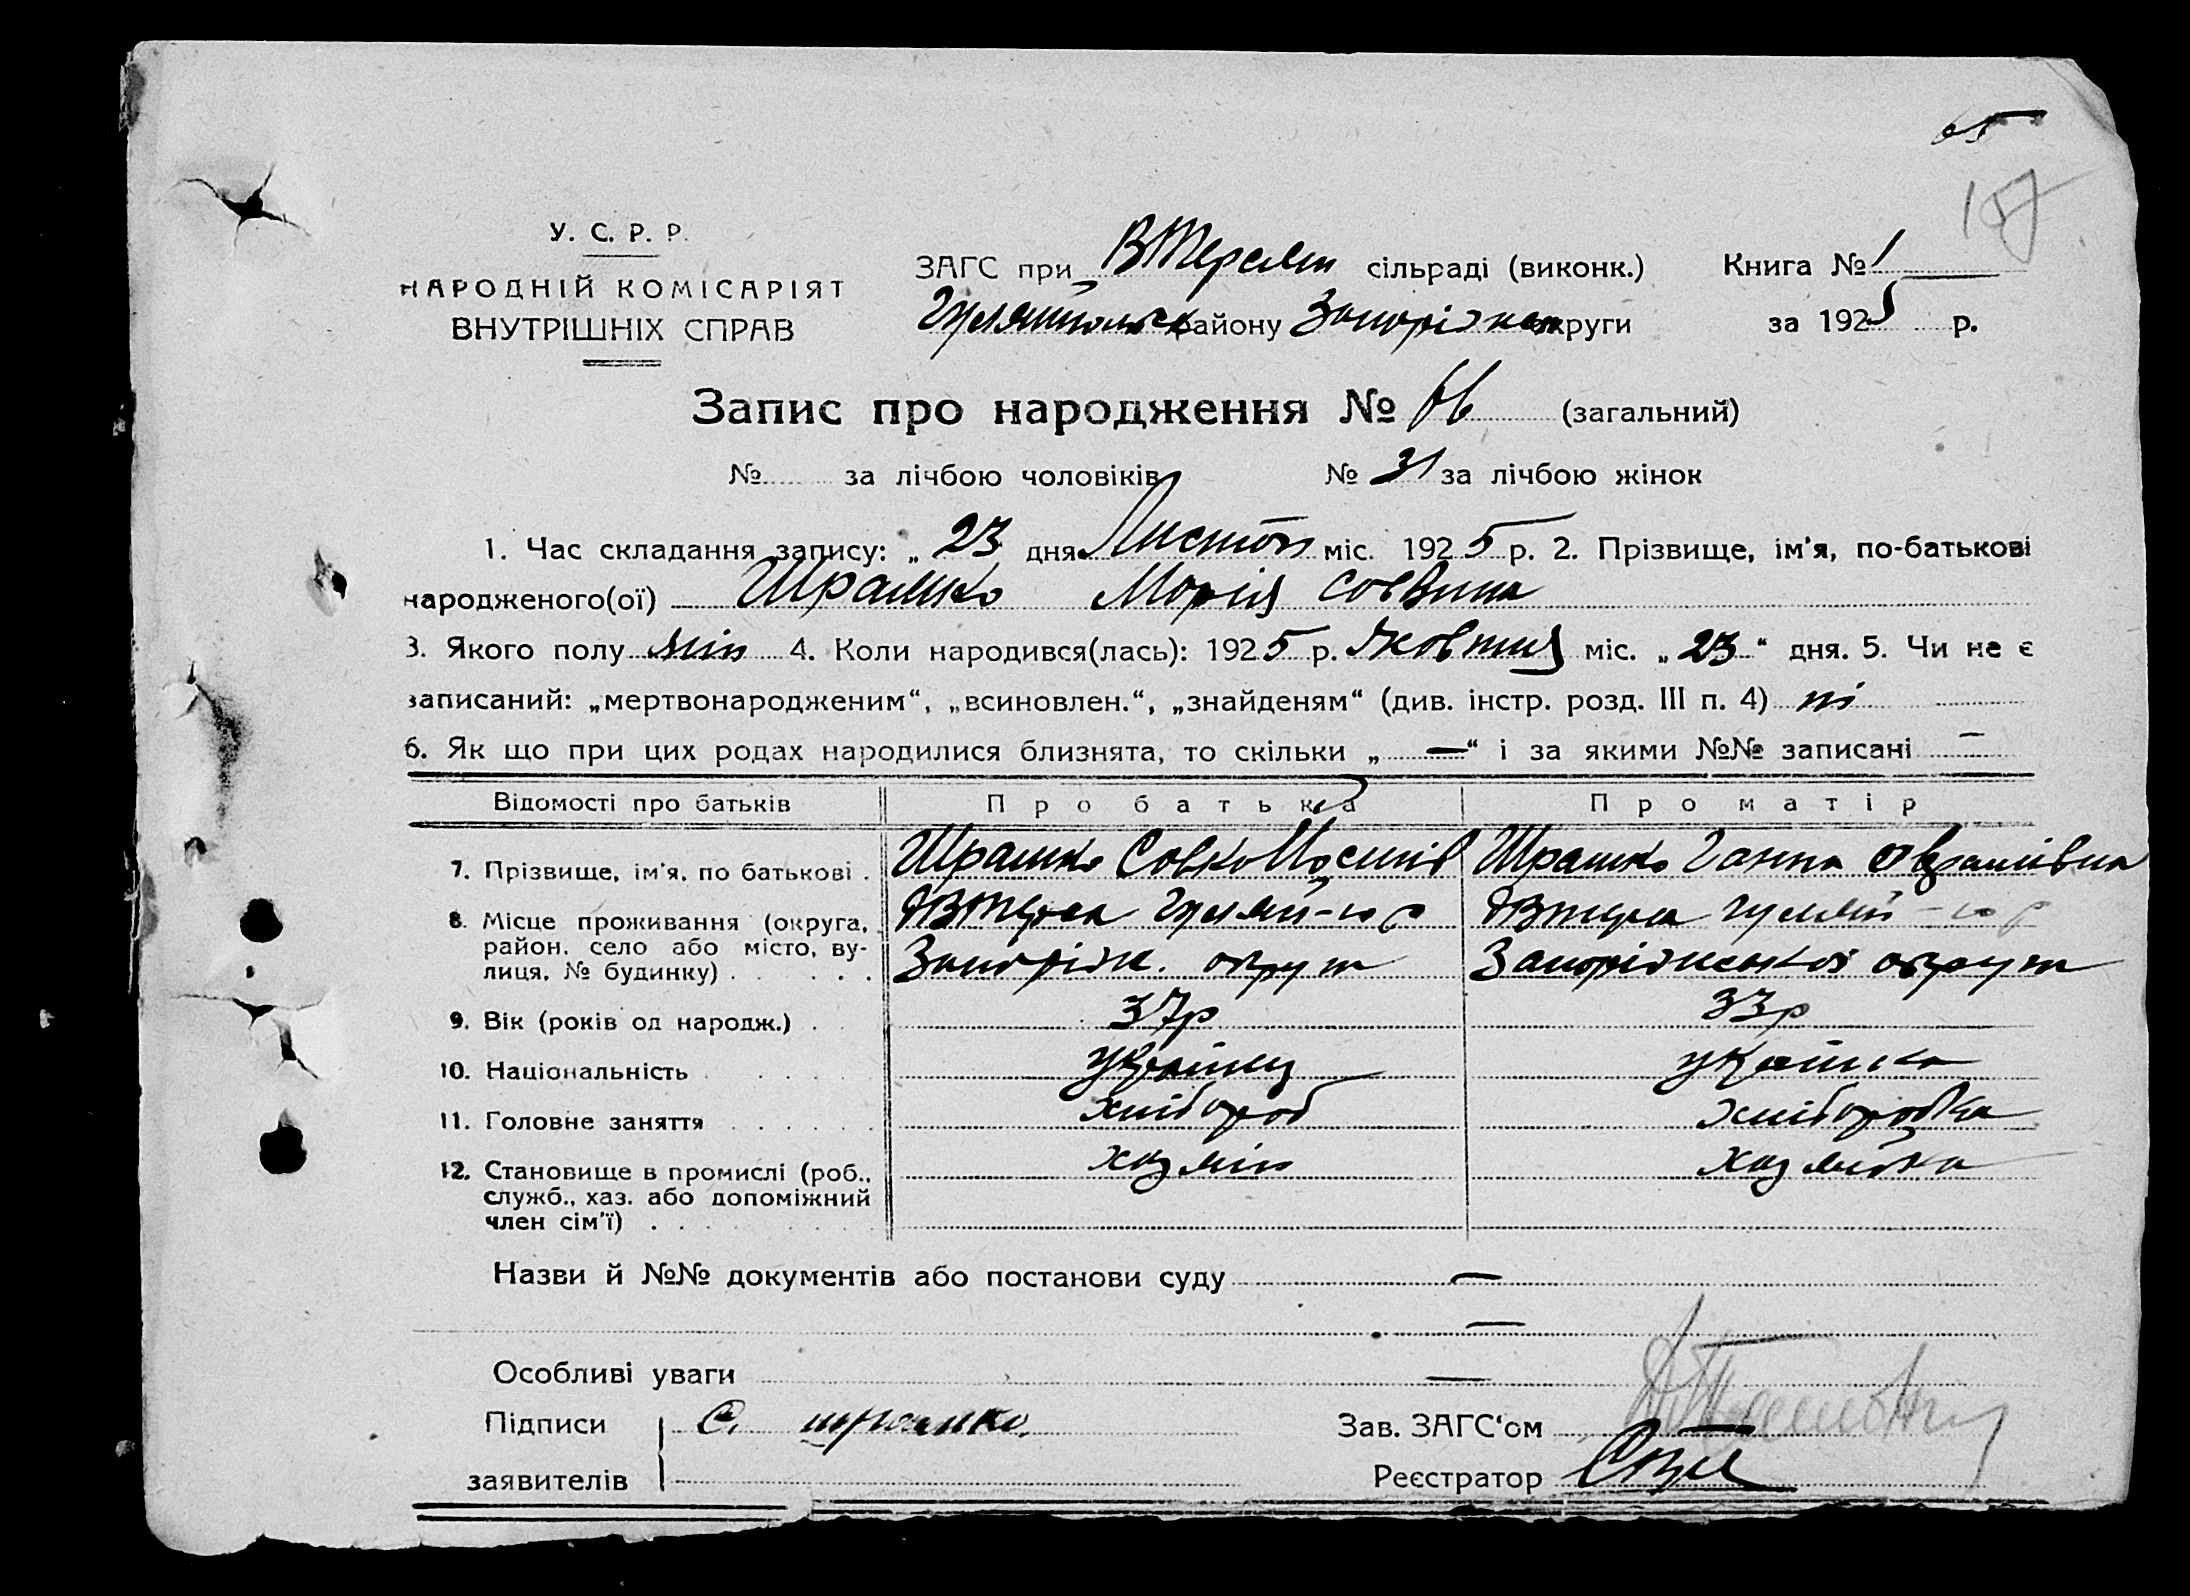 65
157
У. С. Р. Р.
НАРОДНІЙ КОМІСАРІЯТ
ВНУТРІШНІХ СПРАВ
ЗАГС при сільраді (виконк.) Книга № 1
району округи за 1925 р.
Запис про народження № 66 (загальний)
№ за лічбою чоловіків № 31 за лічбою жінок
1. Час складання запису: „ 23 дня Листоп міс. 1925 р. 2. Прізвище, ім'я, по-батькові
народженого(ої) Шрамко Марія
3. Якого полу жін 4. Коли народився(лась): 1925 р. Жовтня міс. „ 23 “ дня. 5. Чи не є
записаний: „мертвонародженим“, „всиновлен.“, „знайденям“ (див. інстр. розд. III п. 4) ні
6. Як що при цих родах народилися близнята, то скільки „ — “ і за якими №№ записані —
Відомості про батьків Про батька Про матір
7. Прізвище, ім'я, по батькові . Шрамко Савко Шрамко Ганна
8. Місце проживання (округа,
район, село або місто, ву-
лиця, № будинку) . . . . Запоріж. округи Запоріжської округи
9. Вік (років од народж.) . 37р 33р
10. Національність українец
11. Головне заняття хлібороб хліборобка
12. Становище в промислі (роб.,
служб., хаз. або допоміжний
член сім'ї) . . . хазяїн хазяйка
Назви й №№ документів або постанови суду —
—
Особливі уваги —
Підписи С. шрамко. Зав. ЗАГС'ом
заявителів Реєстратор